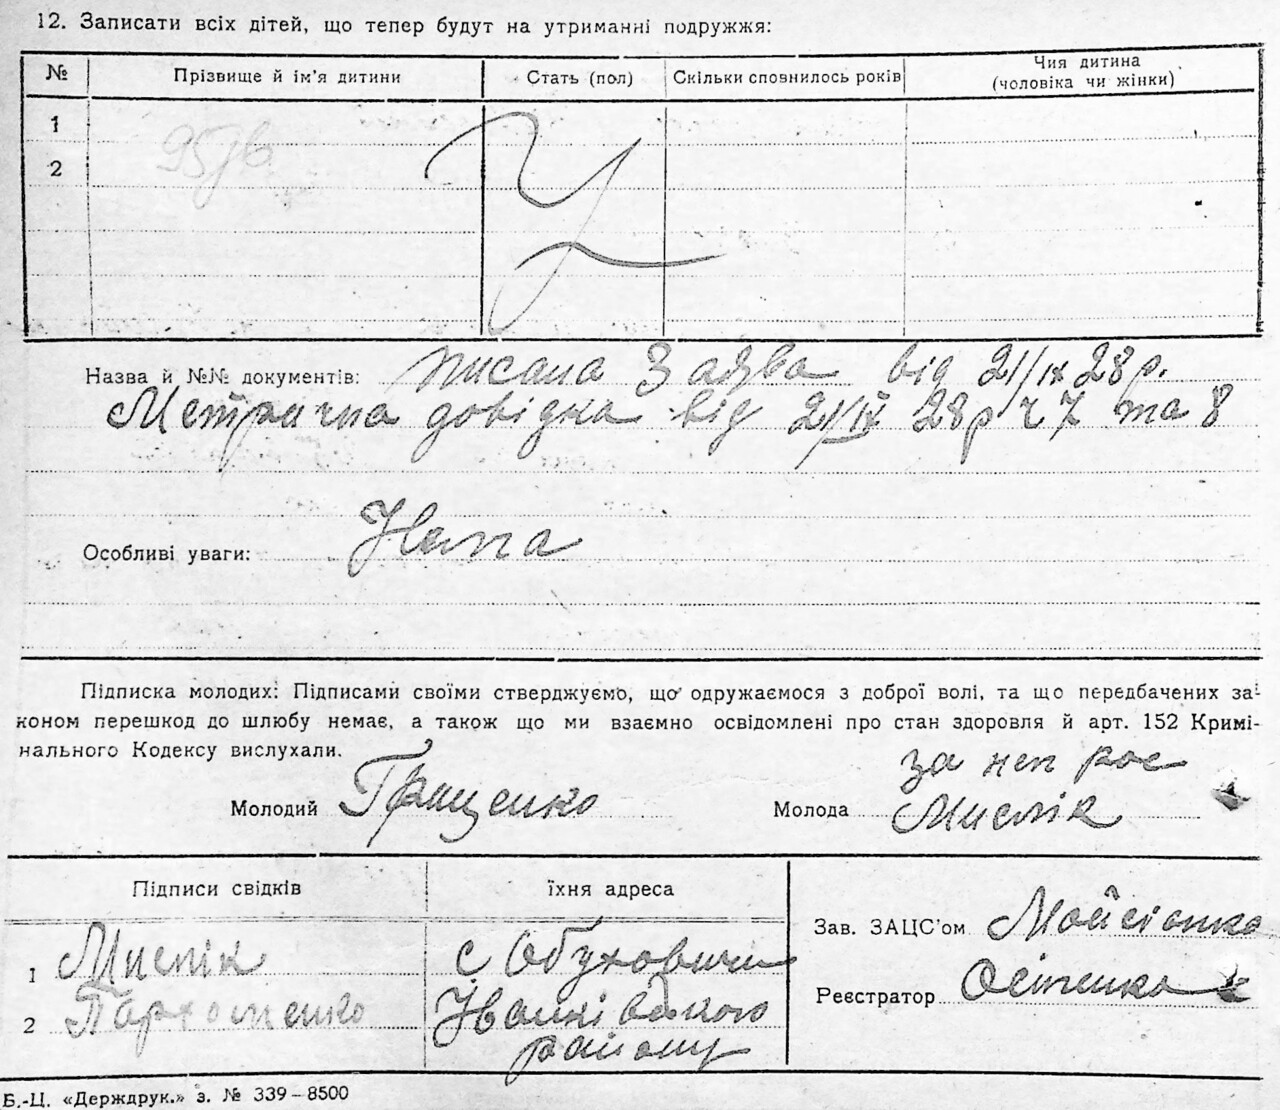 12. Записати всіх дітей, що тепер будут на утриманні подружжя:
№ Прізвище й ім'я дитини Стать (пол) Скільки сповнилось років Чия дитина (чоловіка чи жінки)
1
2
Назва й №№ документів: писана Заява від 21/IX 28 р.
Метрична довідка від 21/IX 28 р ч 7 та 8
Особливі уваги: Нема
Підписка молодих: Підписами своїми стверджуємо, що одружаємося з доброї волі, та що передбачених за-
коном перешкод до шлюбу немає, а також що ми взаємно освідомлені про стан здоров'я й арт. 152 Кримі-
нального Кодексу вислухали.
за неп рос
Молодий Грищенко Молода Мислік
Підписи свідків їхня адреса
Зав. ЗАЦС'ом Мойсієнко
1 Мислік с Обуховичи
Реєстратор
2 Пархоменко Іванківського
району
Б.-Ц. «Держдрук.» з. № 339-8500